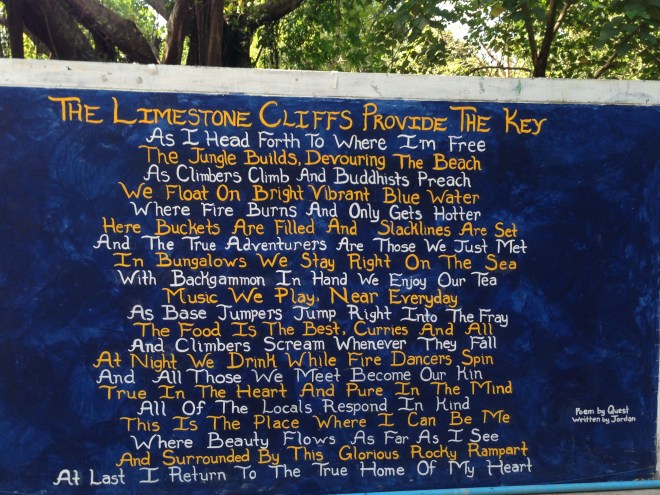 The Limestone Cliffs Provide The Key
As I Head Forth To Where I'm Free
The Jungle Builds, Devouring The Beach
As Climbers Climb And Buddhists Preach
We Float On Bright Vibrant Blue Water
Where Fire Burns And Only Gets Hotter
Here Buckets Are Filled And Slacklines Are Set
And The True Adventurers Are Those We Just Met
In Bungalows We Stay Right On The Sea
With Backgammon In Hand We Enjoy Our Tea
Music We Play, Near Everyday
As Base Jumpers Jump Right Into The Fray
The Food Is The Best, Curries And All
And Climbers Scream Whenever They Fall
At Night We Drink While Fire Dancers Spin
And All Those We Meet Become Our Kin
True In The Heart And Pure In The Mind
All Of The Locals Respond In Kind
This Is The Place Where I Can Be Me
Where Beauty Flows As Far As I See
And Surrounded By This Glorious Rocky Rampart
At Last I Return To The True Home Of My Heart
Poem by Quest
Written by Jordan